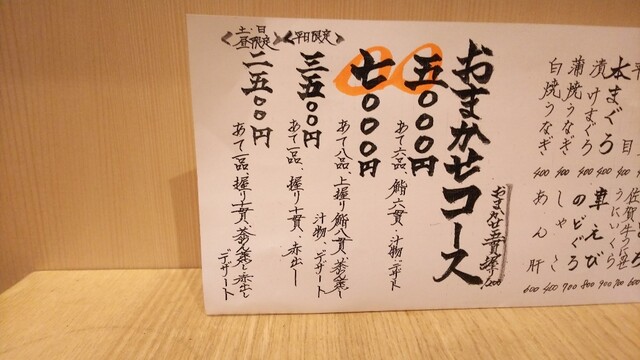 本まぐろ
漬けまぐろ
蒲焼うなぎ
白焼うなぎ
400
400
400
車えび
のどぐろ
しゃこ
あん肝
900
800
700
400
600
おまかせコース
おまかせ五貫握り
五〇〇〇円
あて六品、鮨六貫・汁物、デザート
七〇〇〇円
あて八品、上握り鮨八貫、茶わん蒸し
汁物、デザート
〈平日限定〉
三五〇〇円
あて一品、握り十貫、赤出し
〈土・日昼限定〉
二五〇〇円
あて一品、握り十貫、茶わん蒸し、赤出し
デザート